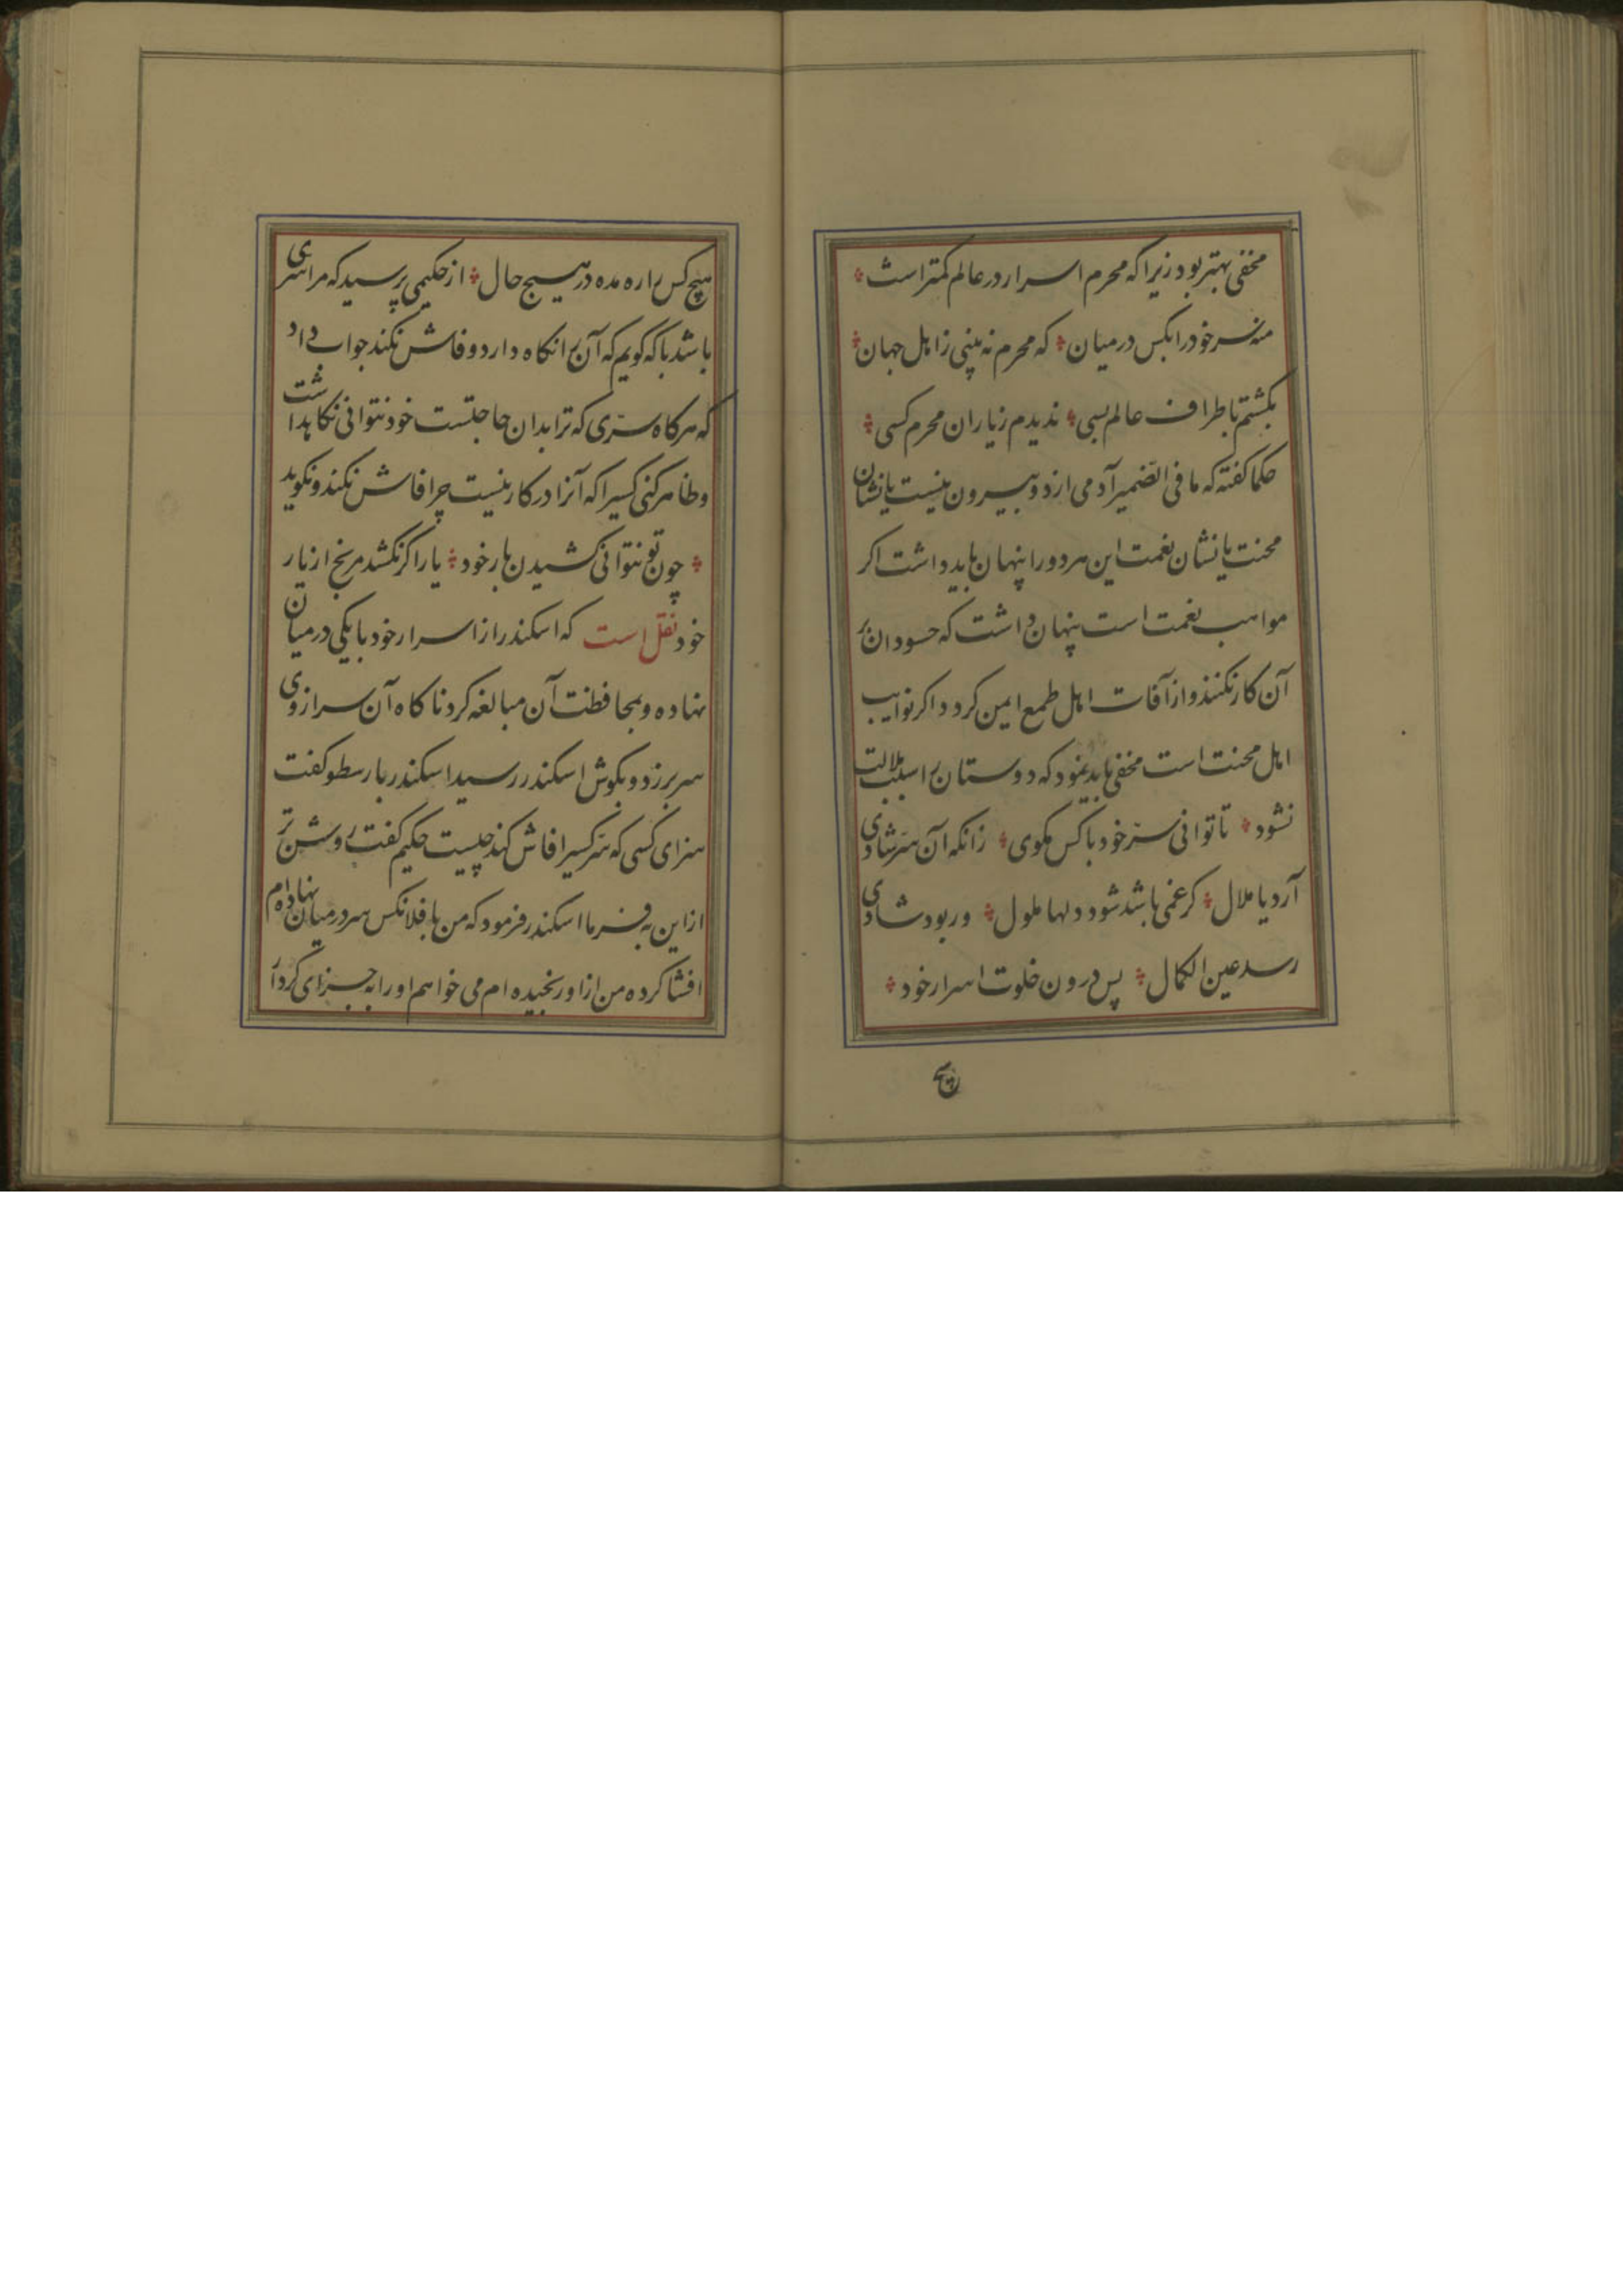 مخفی بهتر بود زیرا که محرم اسرار در عالم کمتر است
منه سر خود را بکس در میان که محرم نه بینی ز اهل جهان
بکشتم باطراف عالم بسی ندیدم ز یاران محرم کسی
حکما کفته که ما فی الضمیر آدمی از دو بیرون نیست یا نشان
محنت یا نشان نعمت این هر دو را پنهان باید داشت اکر
مواهب نعمت است پنهان داشت که حسودان بر
آن کار نکنند و از آفات اهل طمع ایمن کردد و اکر نوایب
اهل محنت است مخفی باید نمود که دوستان را سبب ملالت
نشود تا توانی سرّ خود با کس مکوی زانکه آن سرّ شادی
آرد یا ملال کر غمی باشد شود دلها ملول ور بود شادی
رسد عین الکمال پس درون خلوت اسرار خود
هیچ
هیچ کس را ره مده در هیچ حال از حکیمی پرسید که مرا سری
باشد با که کویم که آن را نکاه دارد و فاش نکند جواب داد
که هر کاه سرّی که ترا بدان حاجتست خود نتوانی نکاهداشت
و ظاهر کنی کسیرا که آنرا در کار نیست چرا فاش نکند و نکوید
چون تو نتوانی کشیدن بار خود یار اکر نکشد مرنج از یار
خود نقل است که اسکندر از اسرار خود با یکی در میان
نهاده و بمحافظت آن مبالغه کرد ناکاه آن سر از وی
سر بر زد و بکوش اسکندر رسید اسکندر بارسطو کفت
سزای کسی که سرّ کسیرا فاش کند چیست حکیم کفت روشن تر
از این به فرما اسکندر فرمود که من با فلانکس سر در میان نهاده ام
افشا کرده من از او رنجیده ام می خواهم او را به جزای کردار